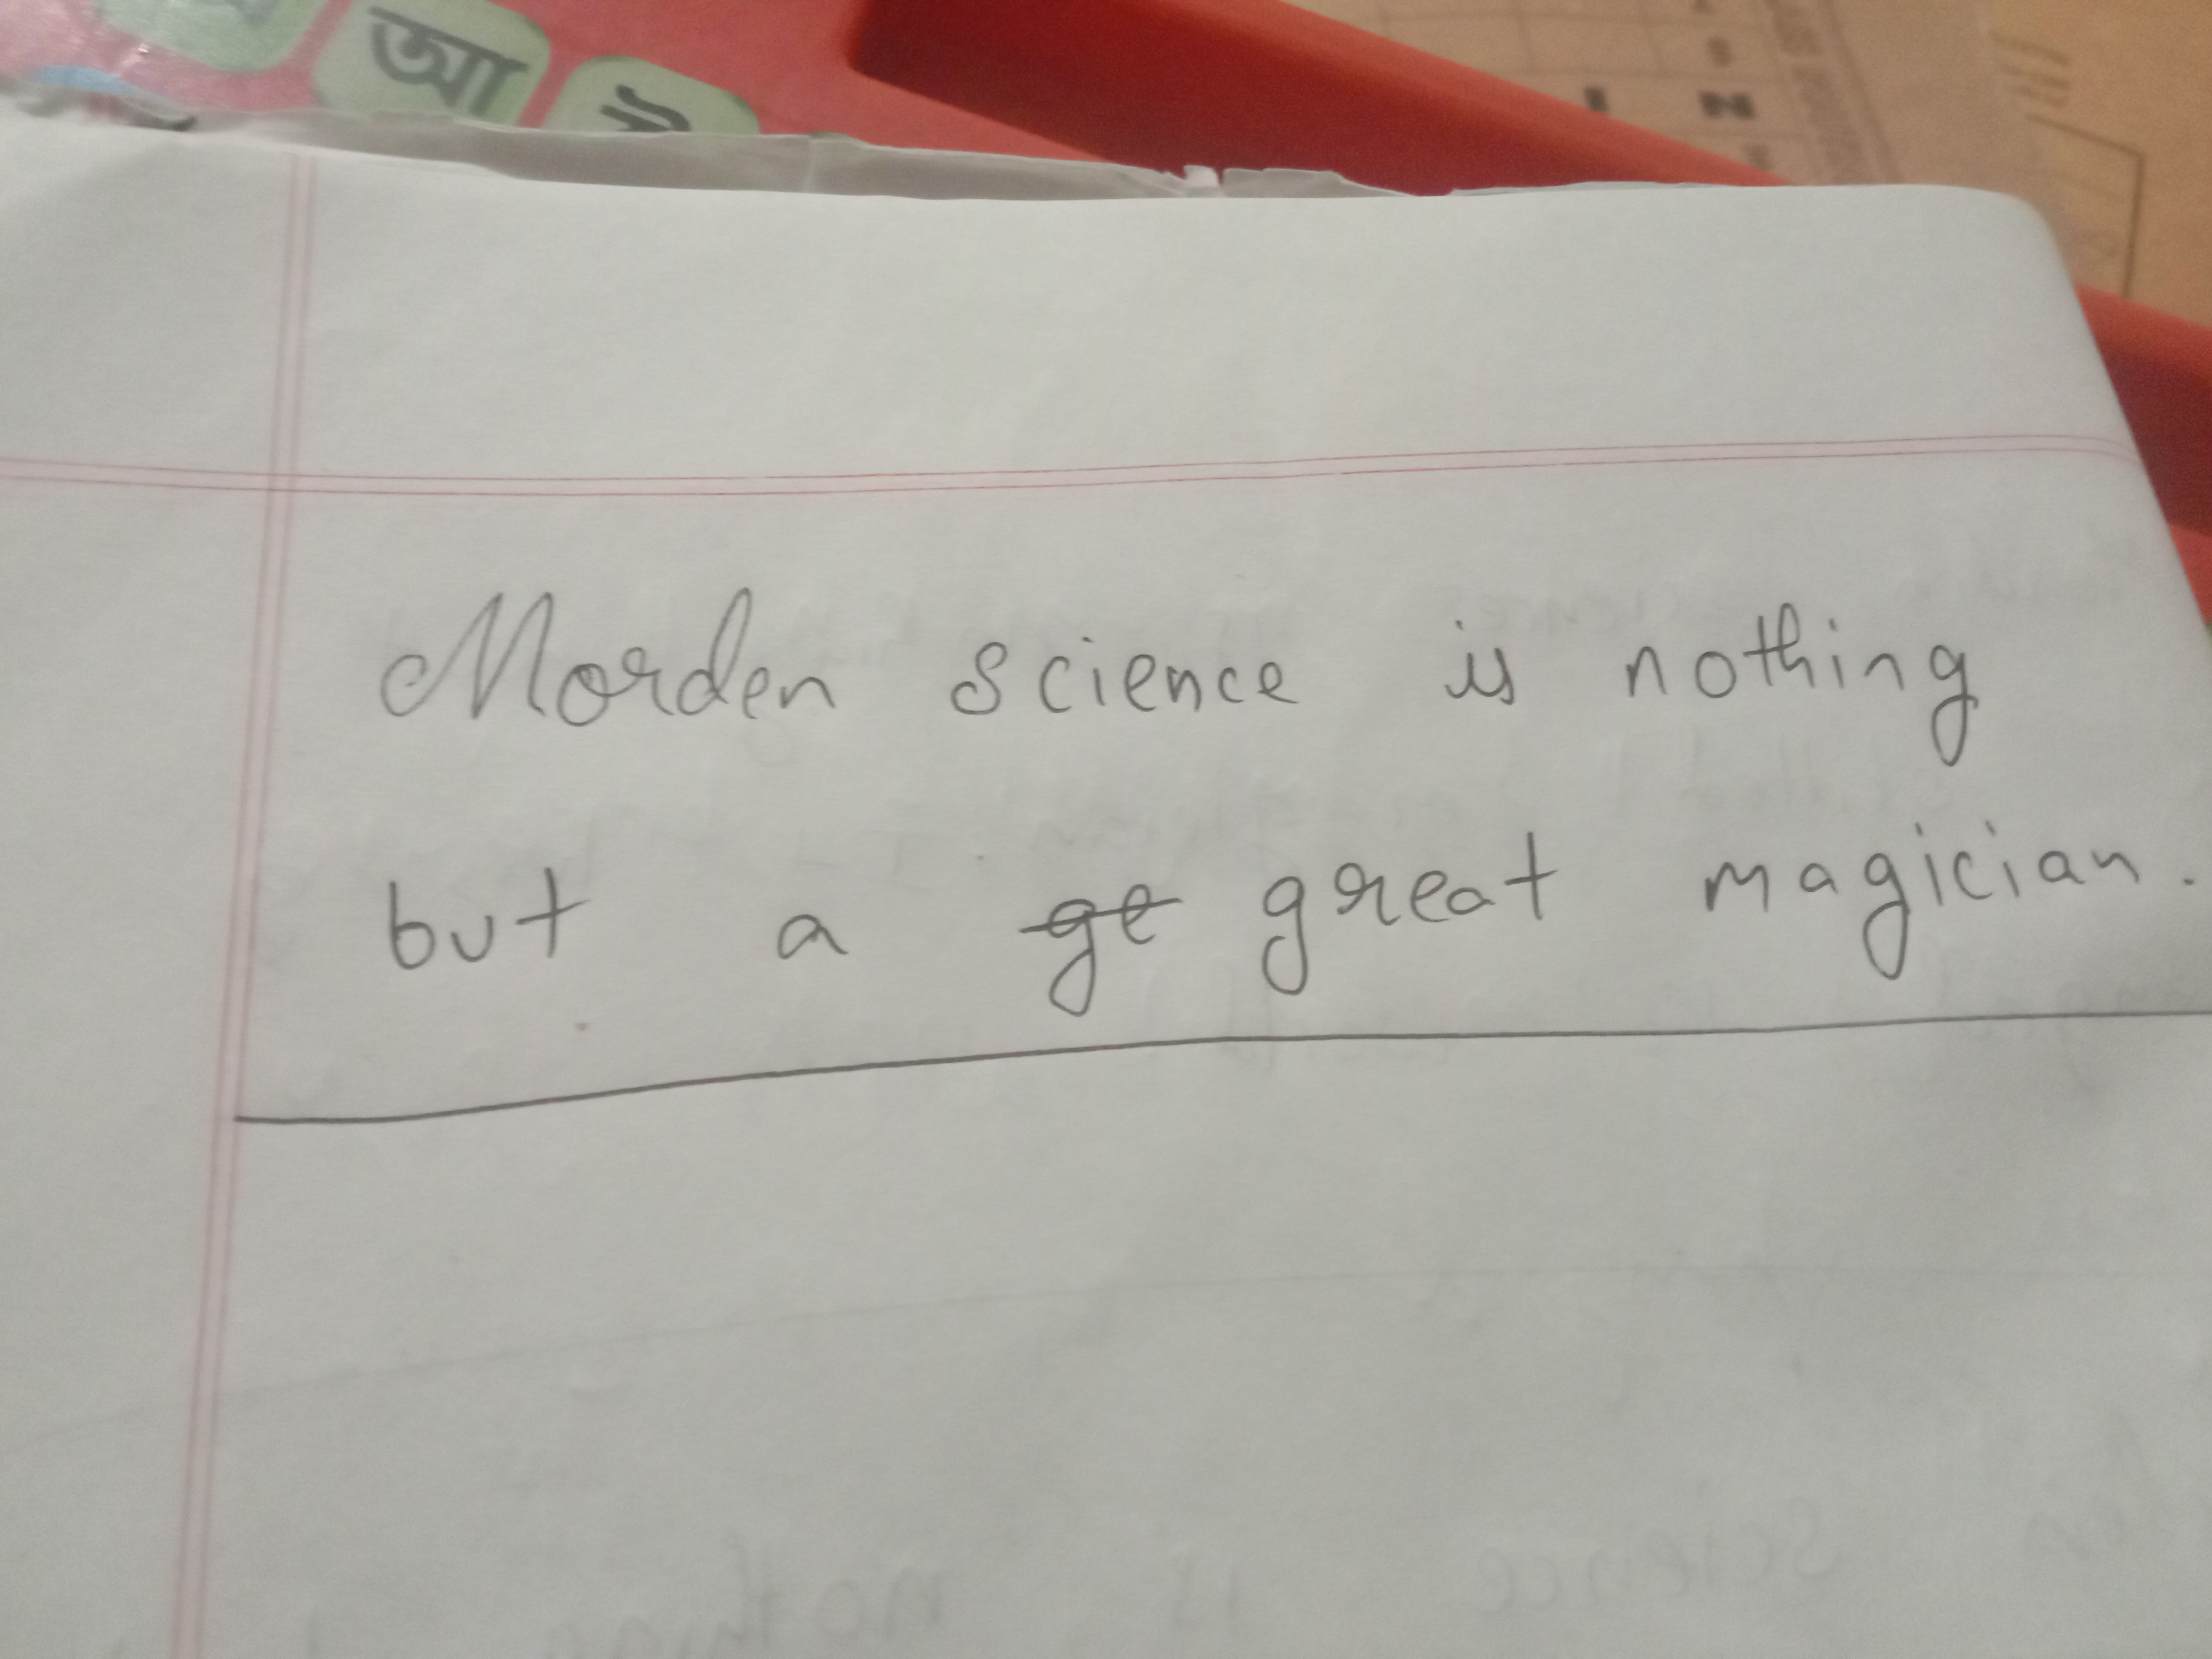 আ
Morden science is nothing
but a ge great magician.